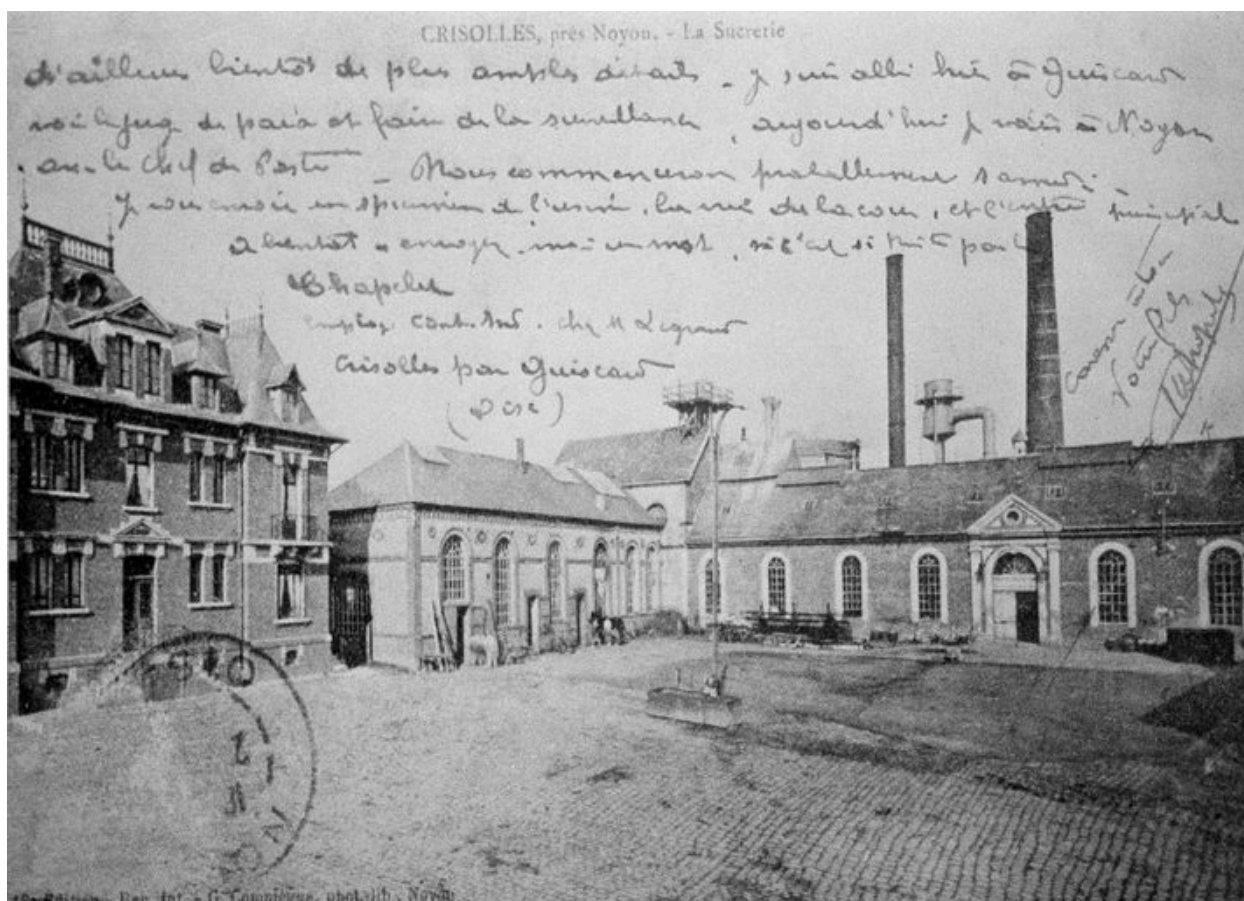 CRISOLLES, près Noyon. - La Sucrerie
d'ailleurs bientôt de plus amples détails - je suis allé hier à Guiscard
voir le juge de paix et faire de la surveillance, aujourd'hui je vais à Noyon
avec le chef de Poste - Nous commencerons probablement samedi -
Je vous envoie un spécimen de l'usine, la vue de la cour, et l'entrée principale
à bientôt - envoyez-moi un mot,
Chapelet
employé contrib. ind. chez M Legrand
Crisolles par Guiscard
(Oise)
Votre fils
G. Compiègne, phot.-lib. Noyon